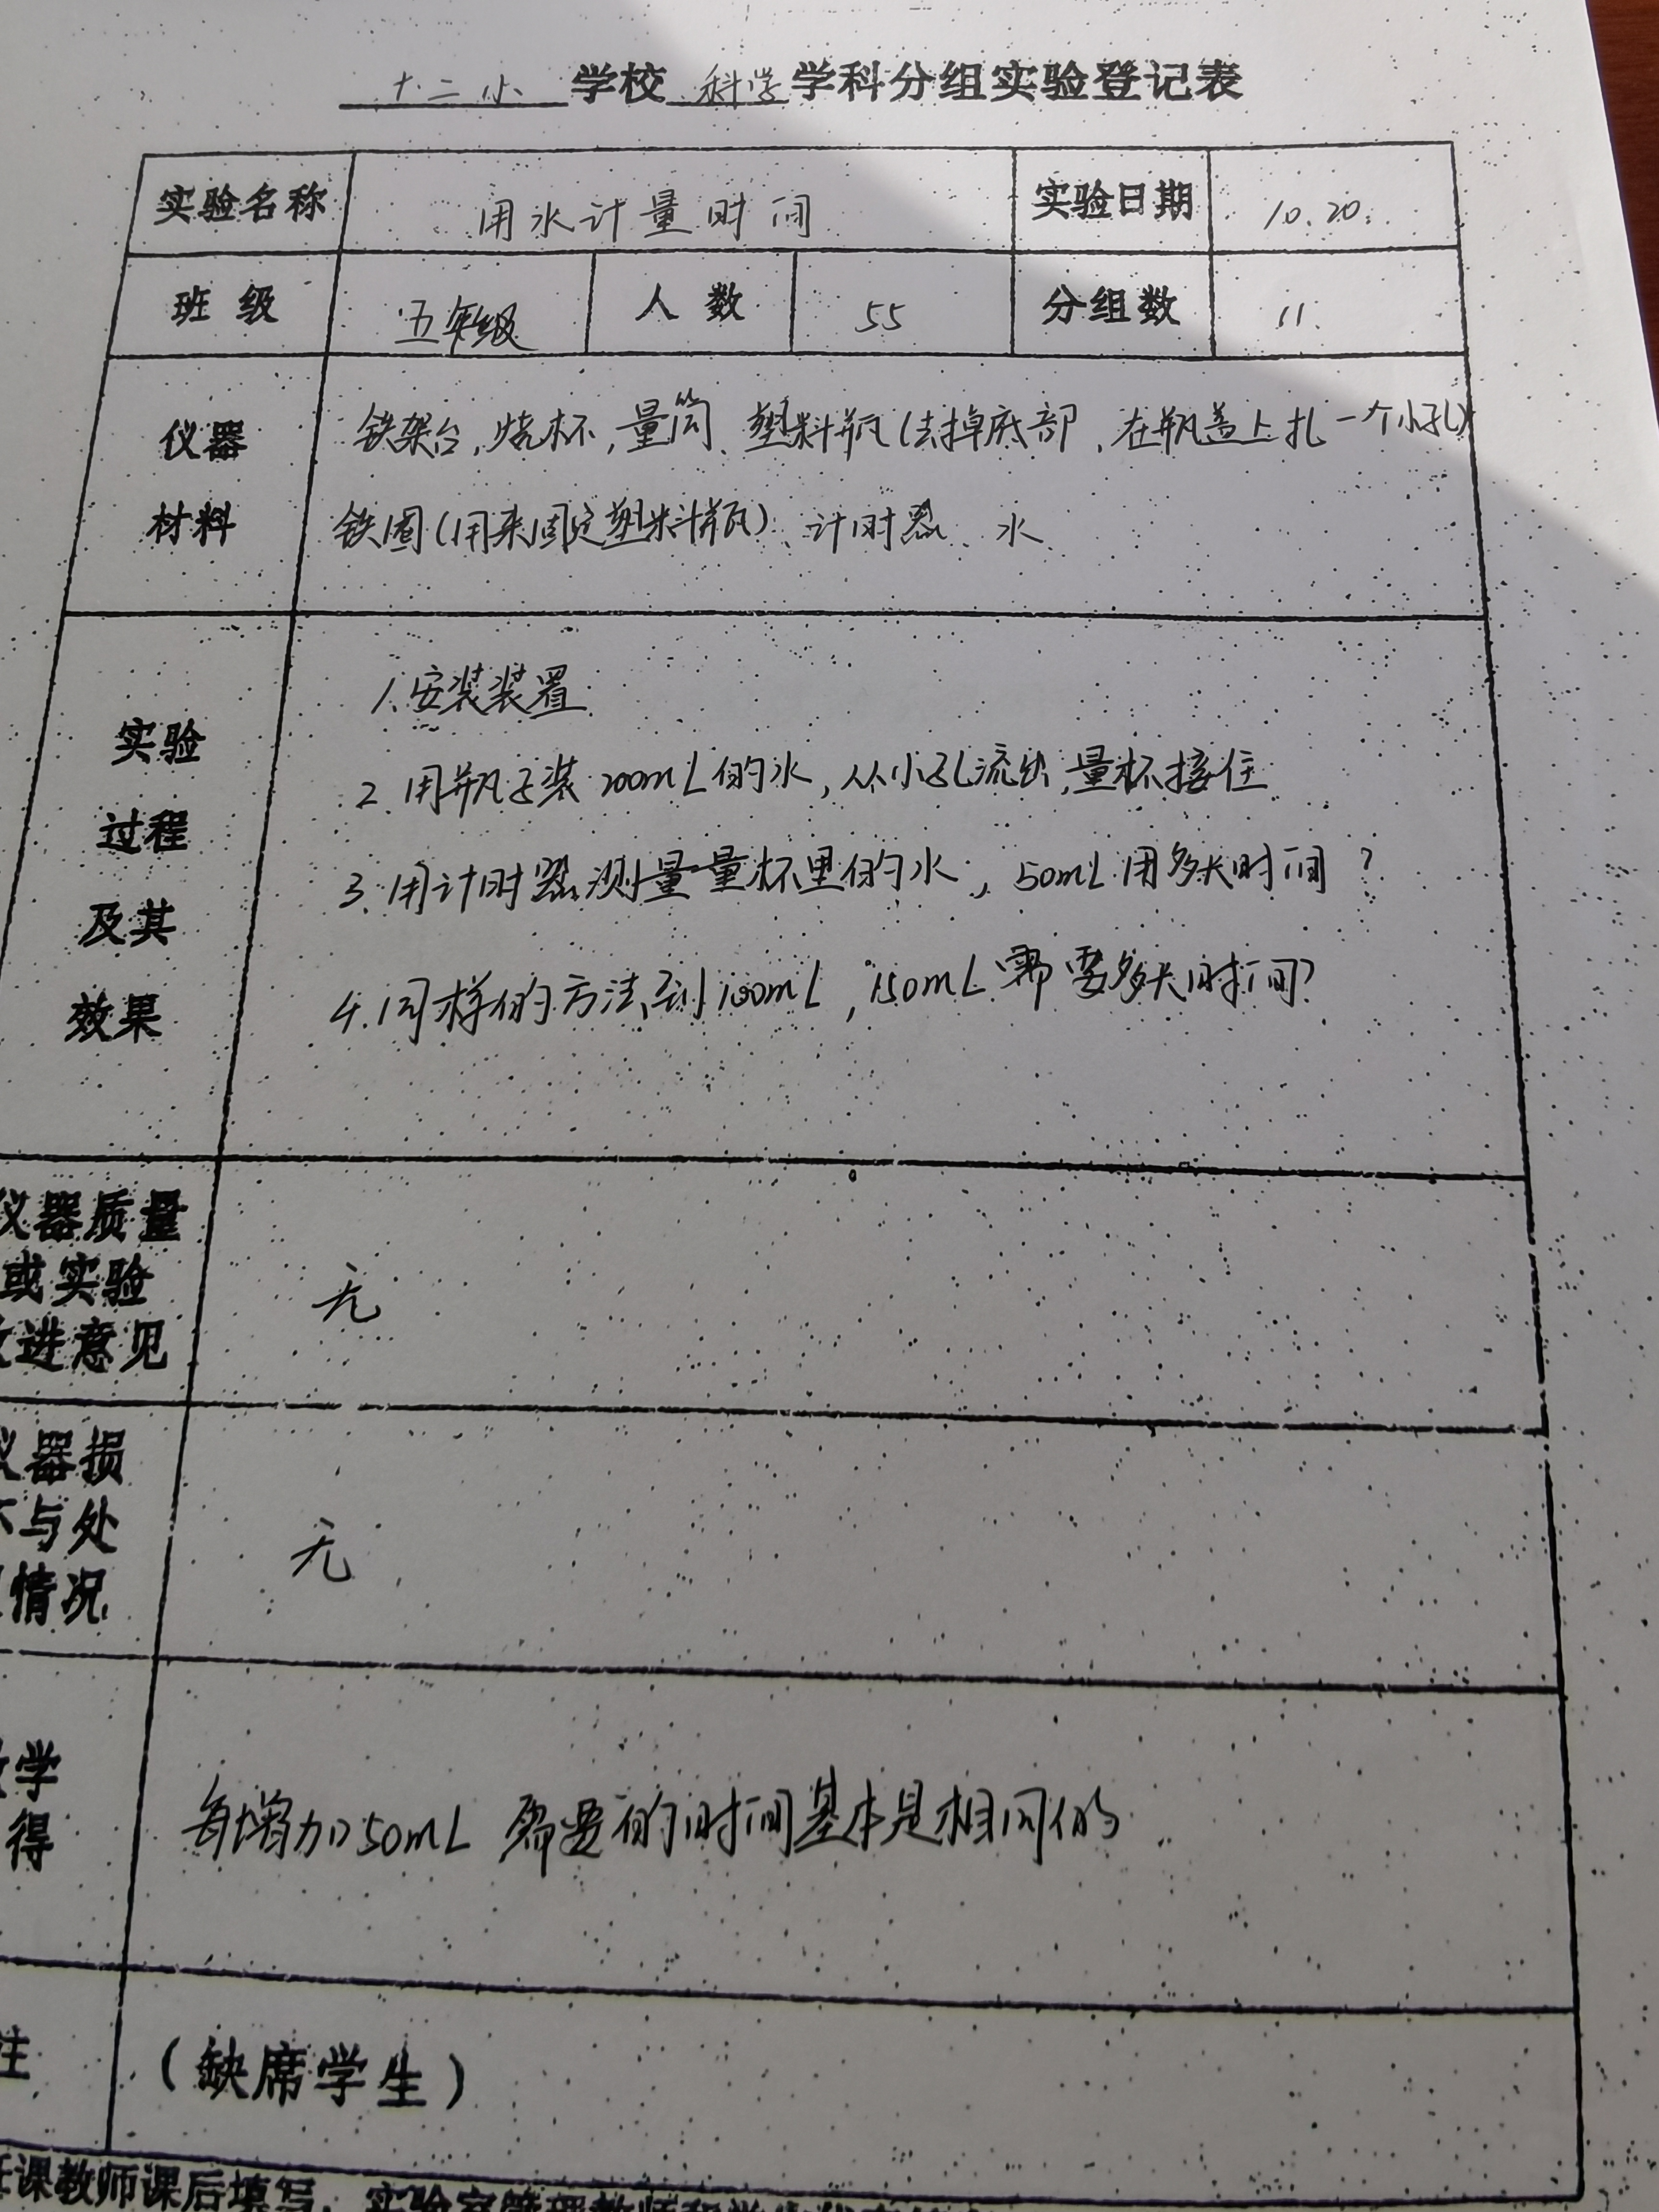 十二小 学校 科学 学科分组实验登记表
实验名称 用水计量时间 实验日期 10.20.
班级 五年级 人数 55 分组数 11.
仪器 铁架台,烧杯,量筒、塑料瓶(去掉底部,在瓶盖上扎一个小孔)
材料 铁圈(用来固定塑料瓶)、计时器、水
实验
过程
及其
效果
1.安装装置
2.用瓶子装200mL的水,从小孔流出,量杯接住
3.用计时器测量量杯里的水,50mL用多长时间?
4.同样的方法到100mL,150mL需要多长时间?
仪器质量
或实验
改进意见
无
仪器损
坏与处
情况
无
学
得
每增加50mL 需要的时间基本是相同的
注 (缺席学生)
任课教师课后填写,实验室管理教师和学生代表